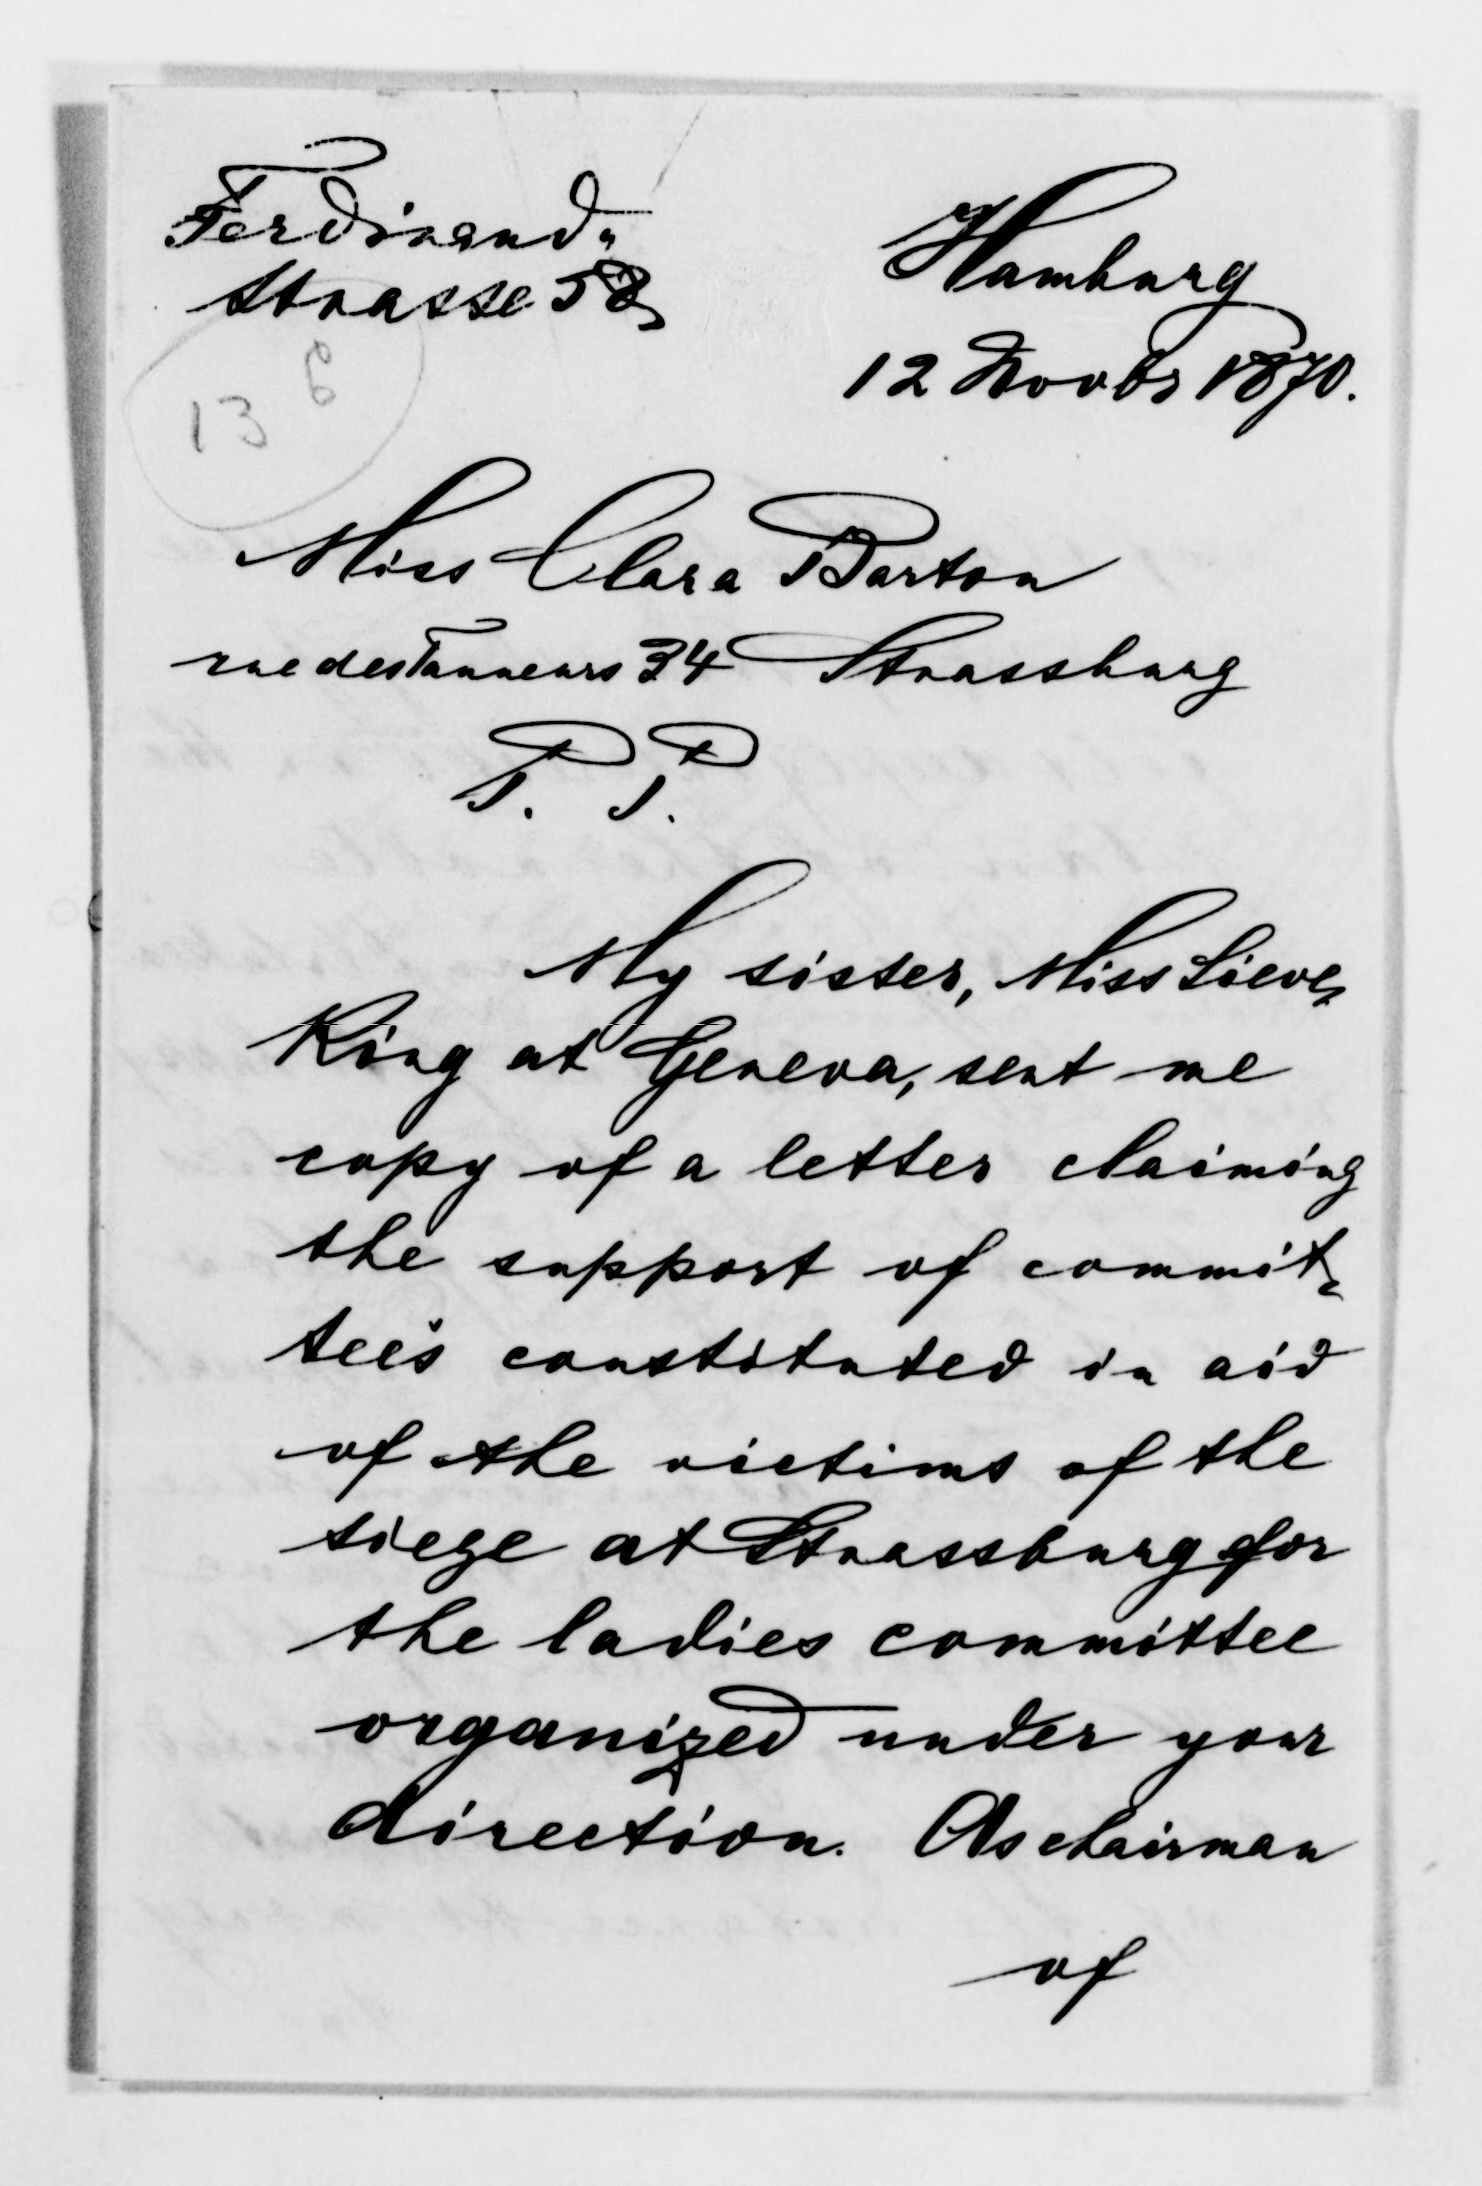 Ferdinand-
strasse 58
Hamburg
12 Novbr 1870.
13 6
Miss Clara Barton
rue des Tanneurs 34 Strassburg
P. P.
My sister, Miss Sieve-
king at Geneva, sent me
copy of a letter claiming
the support of commit-
tee's constituted in aid
of the victims of the
siege at Strassburg for
the ladies committee
organized under your
direction. As chairman
of